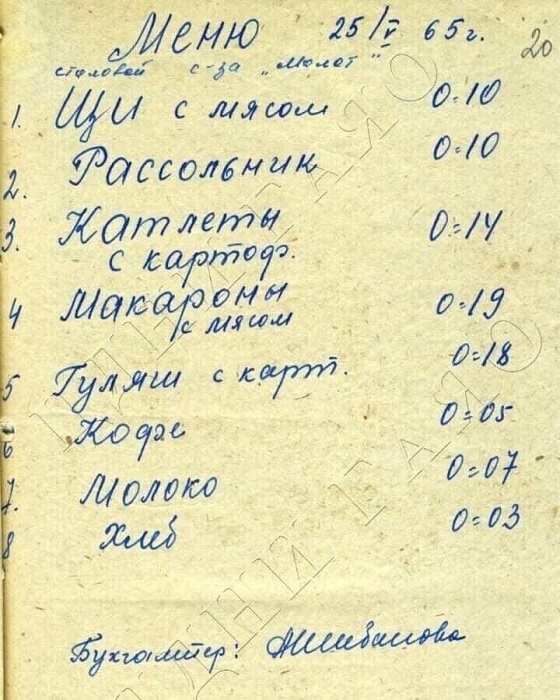 Меню 25/V 65г.
20
столовой с-за „Молот"
1. Щи с мясом 0=10
2. Рассольник 0=10
3. Катлеты 0=14
с картоф.
4 Макароны 0=19
с мясом
5 Гуляш с карт. 0=18
6 Кофе 0=05
7. Молоко 0=07
8 Хлеб 0=03
Бухгалтер: